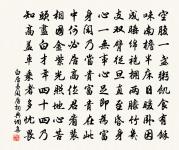 空腹一盞粥飢食有餘
味南檐半床日暖卧因
成睡綿袍擁兩膝竹几
支双臂從旦直至昏身
心一無事心足即為富
身閑乃當貴富貴在此
中何必居高位君看裴
相國金紫光照地心苦
頭盡白才年四十四乃
知高蓋車乘者多憂畏
白居易閑居